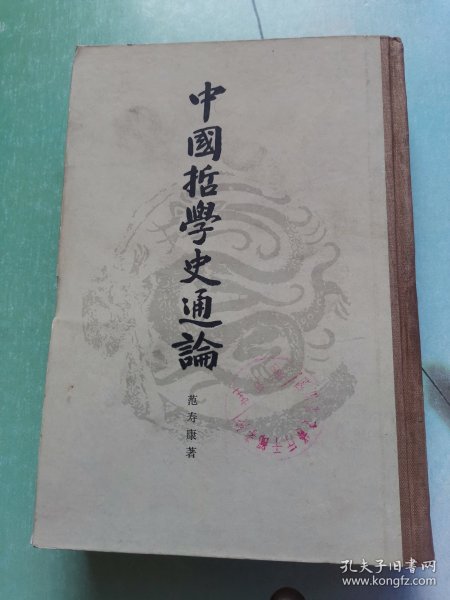 中國哲學史通論
范寿康著
孔夫子旧书网
www.kongfz.com